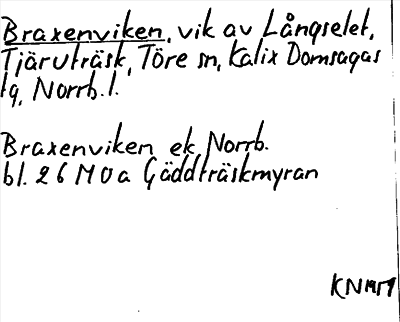 Braxenviken, vik av Långselet,
Tjäruträsk, Töre sn, Kalix Domsagas
tg, Norrb. l.
Braxenviken ek. Norrb.
bl. 26 M 0 a Gäddträskmyran